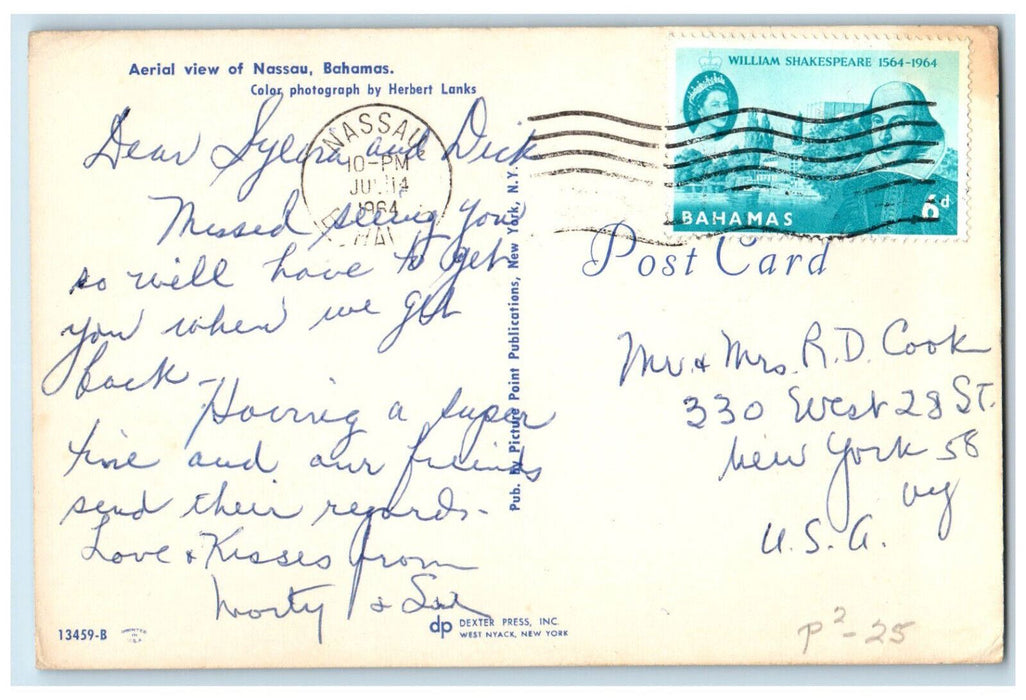 Aerial view of Nassau, Bahamas.
Color photograph by Herbert Lanks
WILLIAM SHAKESPEARE 1564-1964
BAHAMAS
6d
NASSAU
10-PM
JUL 14
1964
Post Card
Dear Sylvia and Dick
Missed seeing you
so will have to get
you when we get
back -
Having a super
time and our friends
send their regards -
Love & Kisses from
Morty & Sue
Pub. by Picture Point Publications, New York, N.Y.
Mr & Mrs. R.D. Cook
330 West 28 St.
New York 58
NY
U.S.A.
13459-B
dp DEXTER PRESS, INC.
WEST NYACK, NEW YORK
P2-25